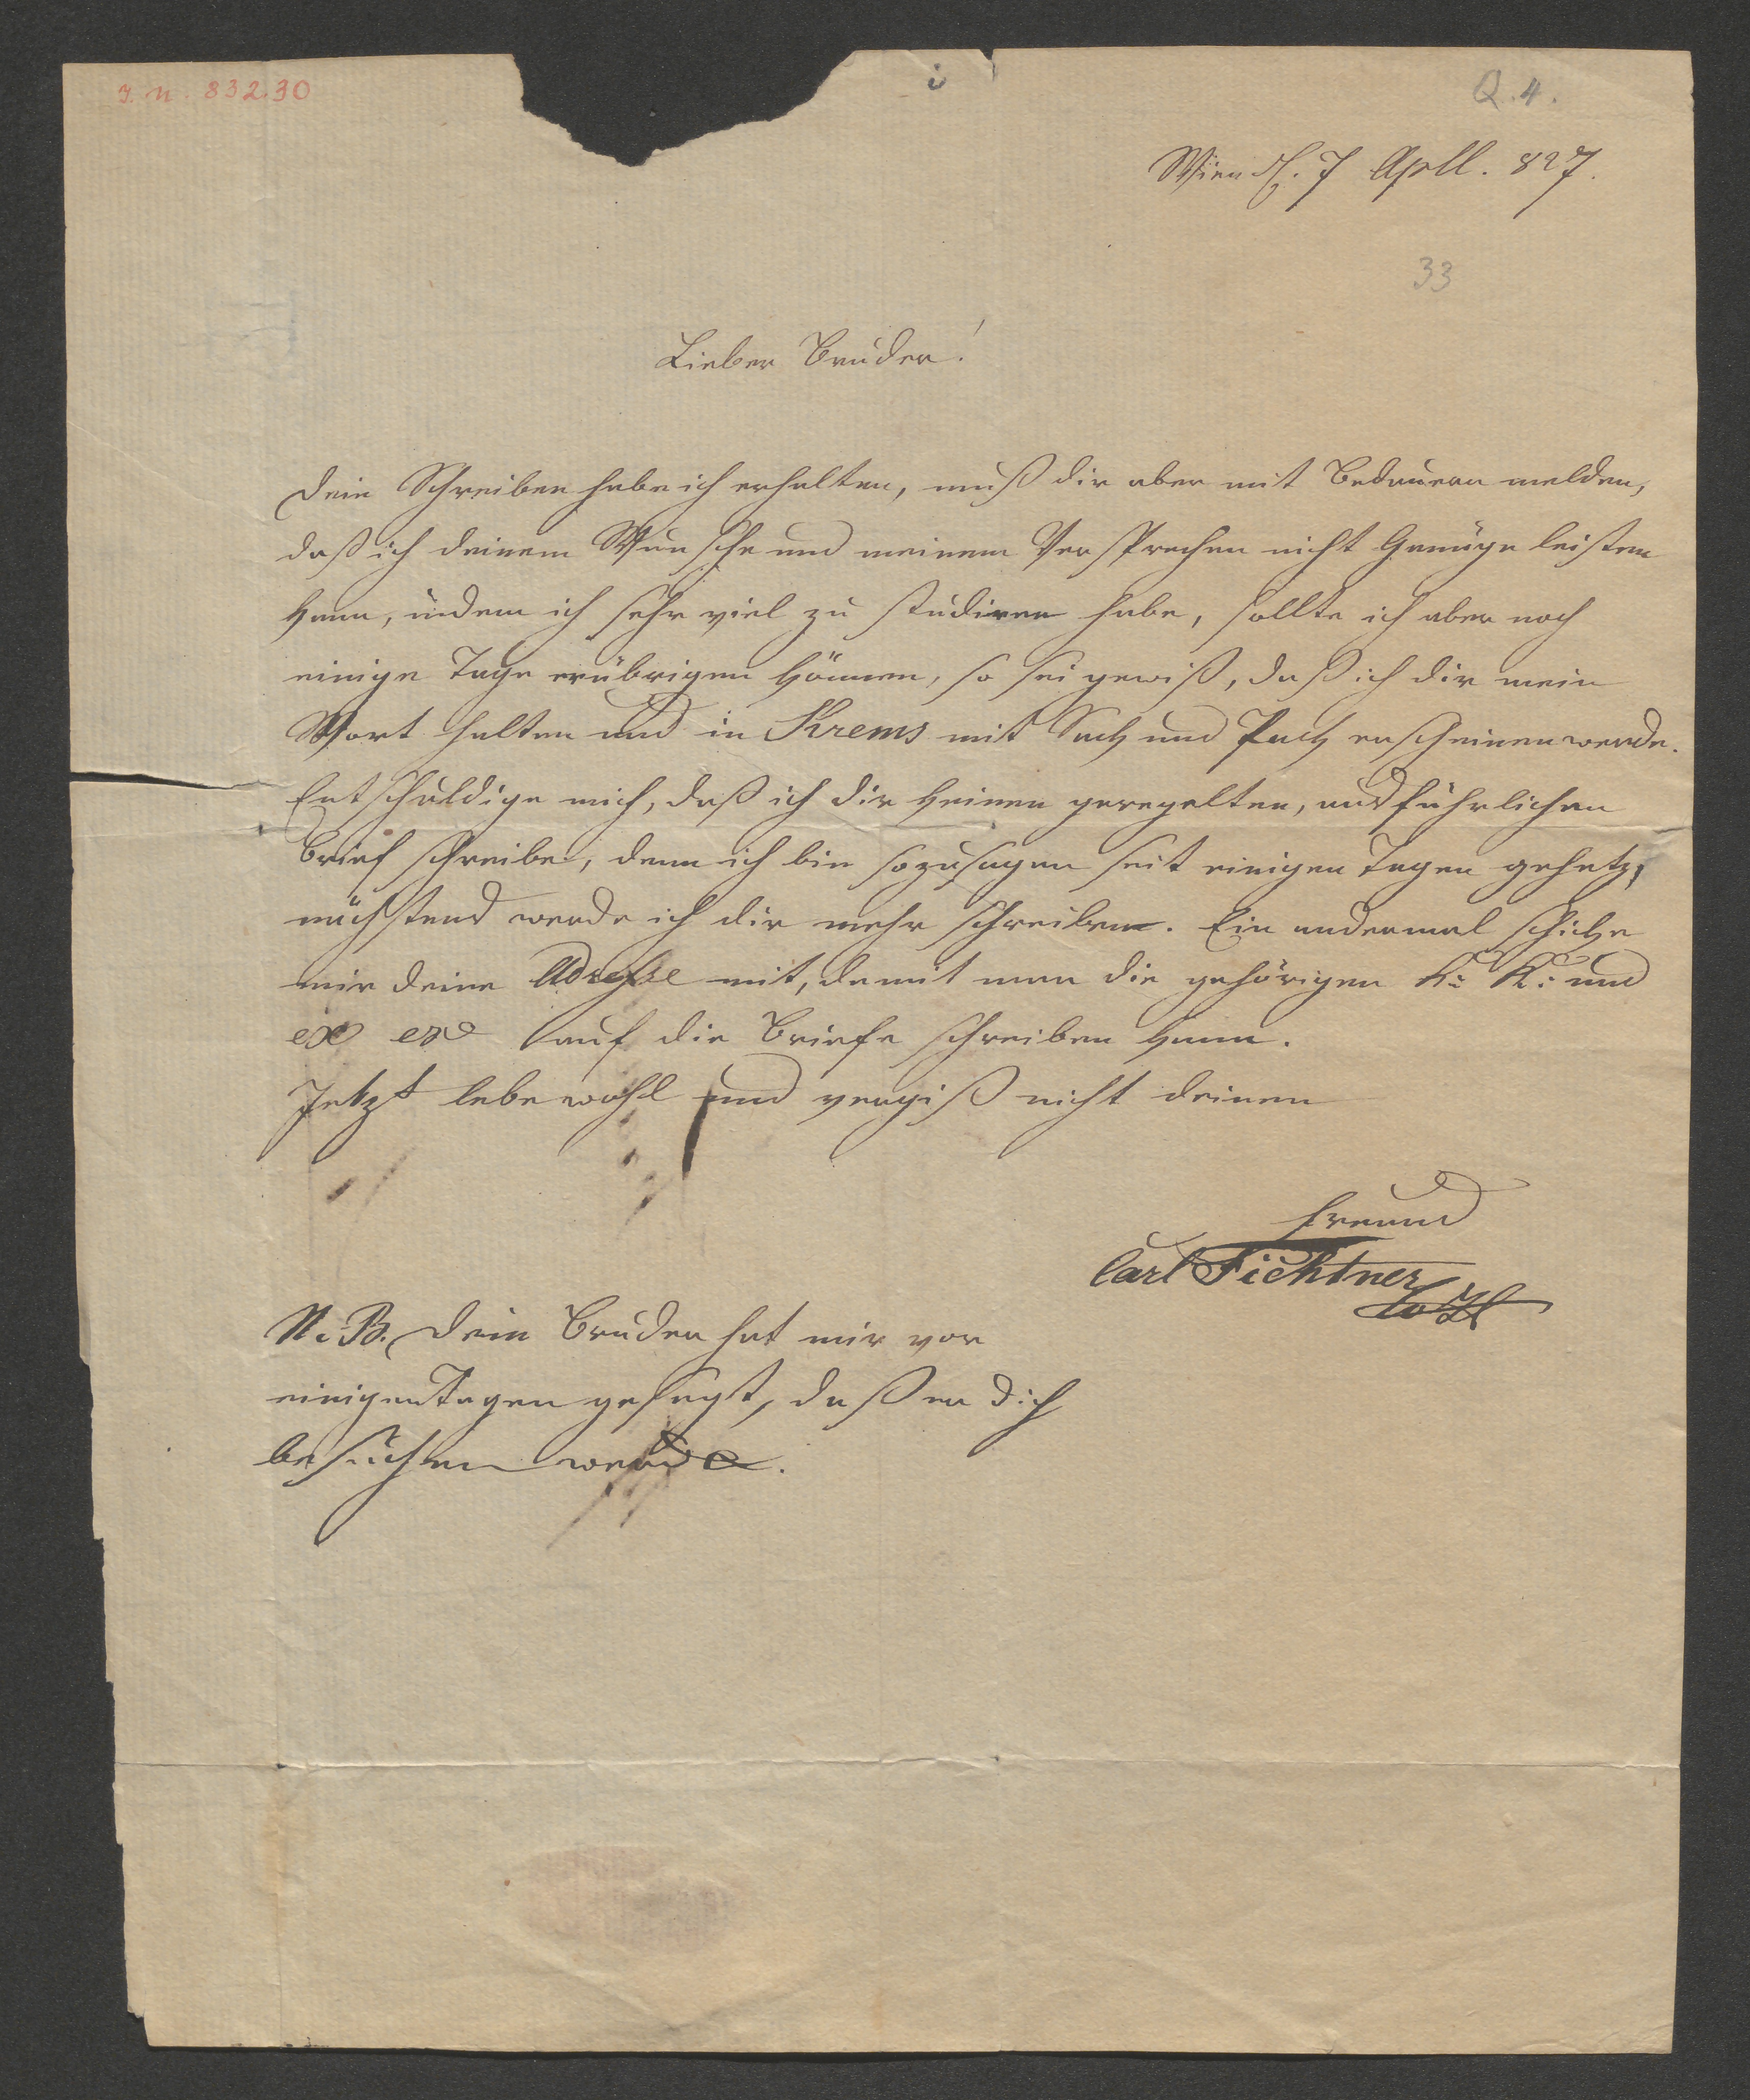 I. N. 83230
Q. 4.
Wien d. 7 Apll. 827.
33
Lieber Bruder!
Dein Schreiben habe ich erhalten, muß dir aber mit Bedauern melden,
daß ich deinem Wunsche und meinem Versprechen nicht Genüge leisten
kann, indem ich sehr viel zu studiren habe, sollte ich aber noch
einige Tage erübrigen können, so sei gewiß, daß ich dir mein
Wort halten und in Krems mit Sack und Pack erscheinen werde.
Entschuldige mich, daß ich dir keinen geregelten, ausführlichen
Brief schreibe, denn ich bin sozusagen seit einigen Tagen gehetzt,
nächstens werde ich dir mehr schreiben. Ein andermal schicke
mir deine Adresse mit, damit man die gehörigen K: K: und
auf die Briefe schreiben kann.
Jetzt lebe wohl und vergiß nicht deinen
Freund
Carl Fichtner
N. B. Dein Bruder hat mir vor
einigen Tagen gesagt, daß er dich
besuchen werde.